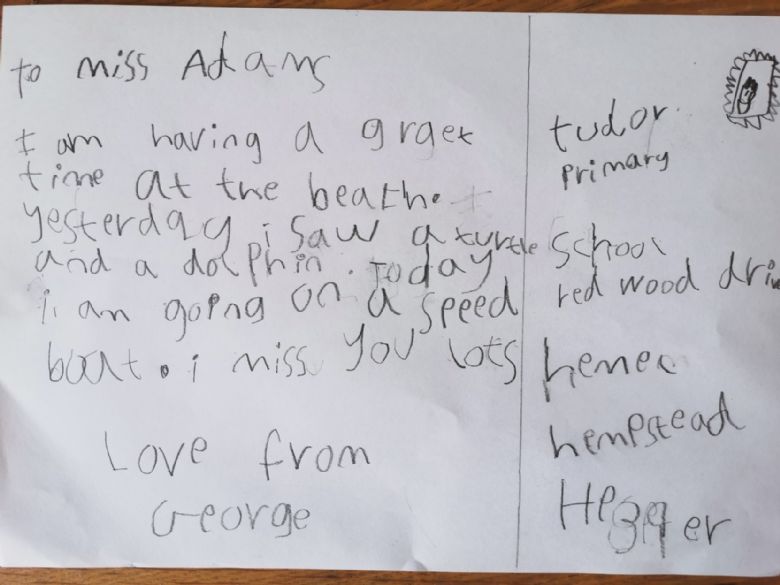 to miss Adams
I am having a graet
time at the beath.
yesterday i saw a turtle
and a dolphin. Today
i am going on a speed
boat. i miss you lots
Love from
George
tudor
primary
school
red wood driv
hemel
hempstead